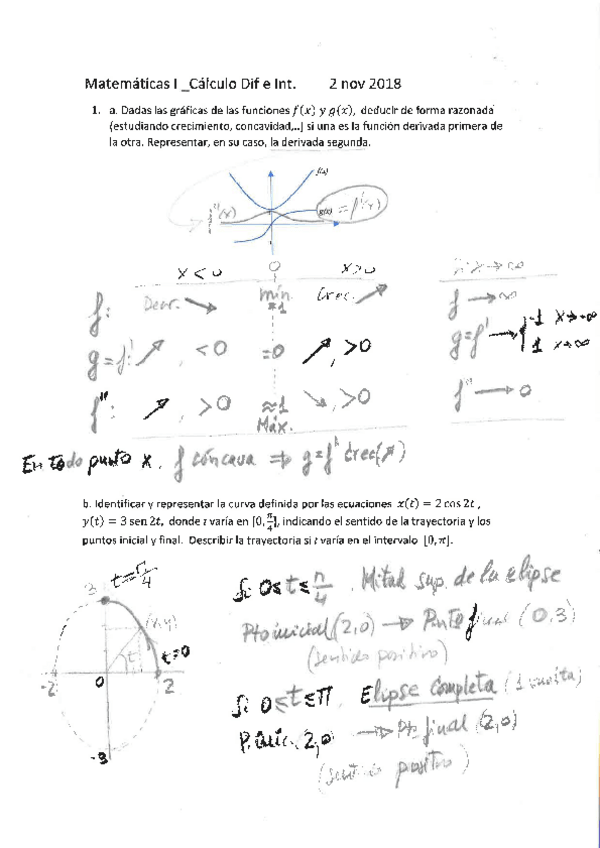 Matemáticas I _Cálculo Dif e Int. 2 nov 2018
1. a. Dadas las gráficas de las funciones f(x) y g(x), deducir de forma razonada
(estudiando crecimiento, concavidad,..] si una es la función derivada primera de
la otra. Representar, en su caso, la derivada segunda.
f(x)
f''(x) g(x) = f'(x)
x<0 0 x>0 x→∞
f: Decr. ↘ mín ≈1 Crec. ↗ f→∞
g=f': ↗, <0 =0 ↗, >0 g=f' → { -1 x→-∞
1 x→∞
f'': ↗, >0 ≈1 ↘, >0 f''→0
Máx.
En todo punto x. f cóncava ⇒ g=f' crec(↗)
b. Identificar y representar la curva definida por las ecuaciones x(t) = 2 cos 2t ,
y(t) = 3 sen 2t, donde t varía en [0, π/4], indicando el sentido de la trayectoria y los
puntos inicial y final. Describir la trayectoria si t varía en el intervalo [0, π].
3 t=π/4
(x,y)
t t=0
-2 0 2
-3
Si 0≤t≤π/4. Mitad sup. de la elipse
Pto inicial (2,0) → Punto final (0,3)
(sentido positivo)
Si 0≤t≤π. Elipse Completa (1 vuelta)
P. inic. 2,0) → Pto final (2,0)
(sentido positivo)